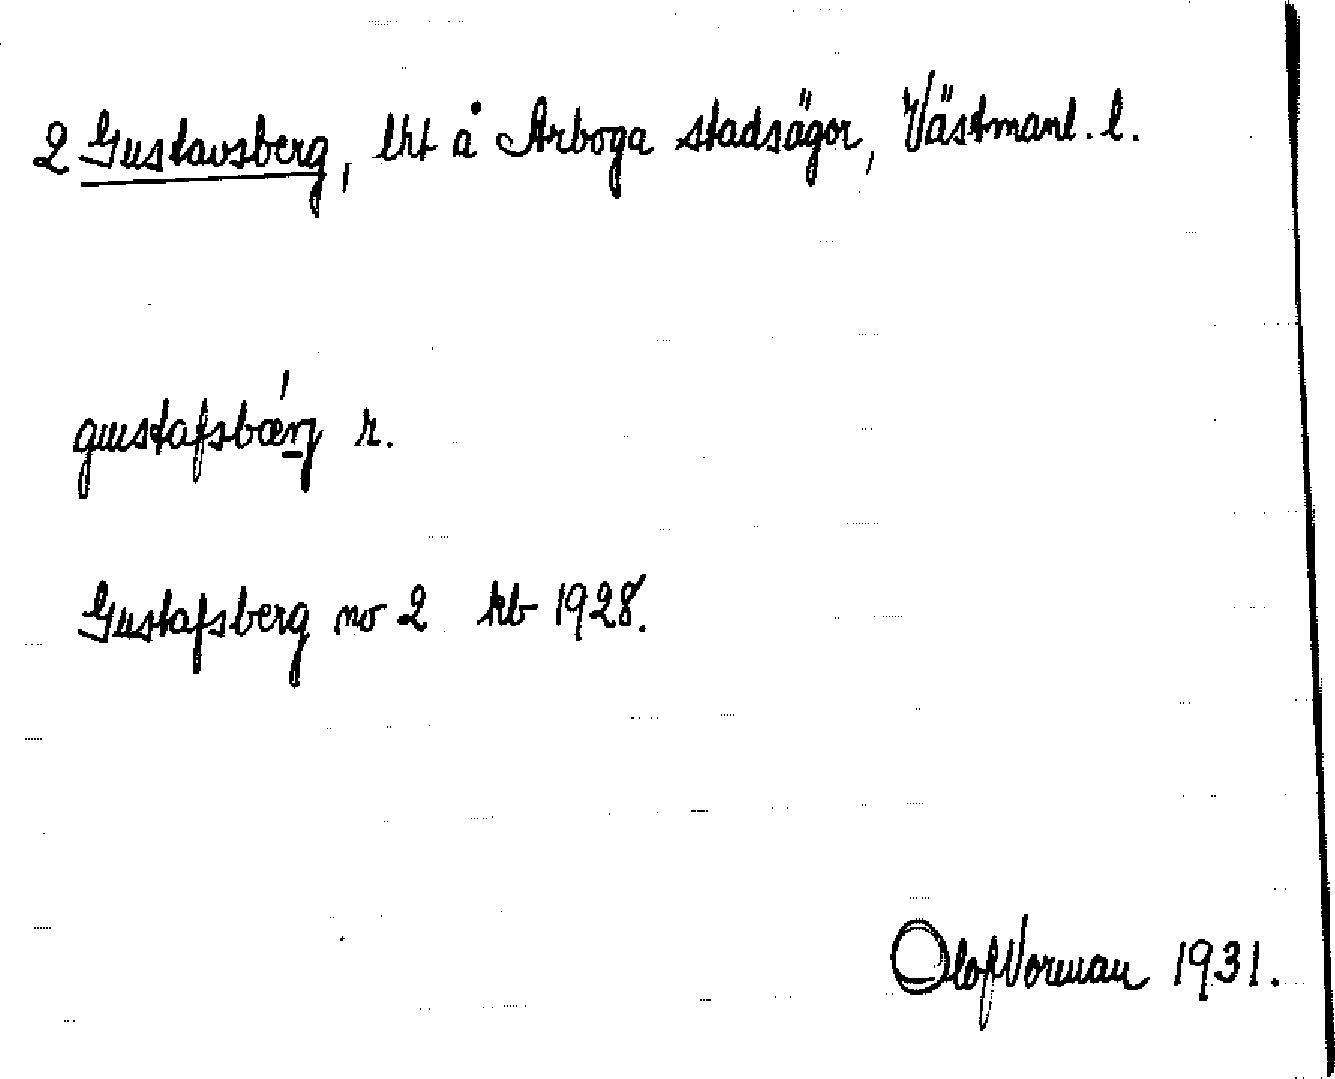 2 Gustavsberg, lht å Arboga stadsägor, Västmanl. l.
gustafsbærj r.
Gustafsberg no 2 kb 1928.
Olof Norman 1931.